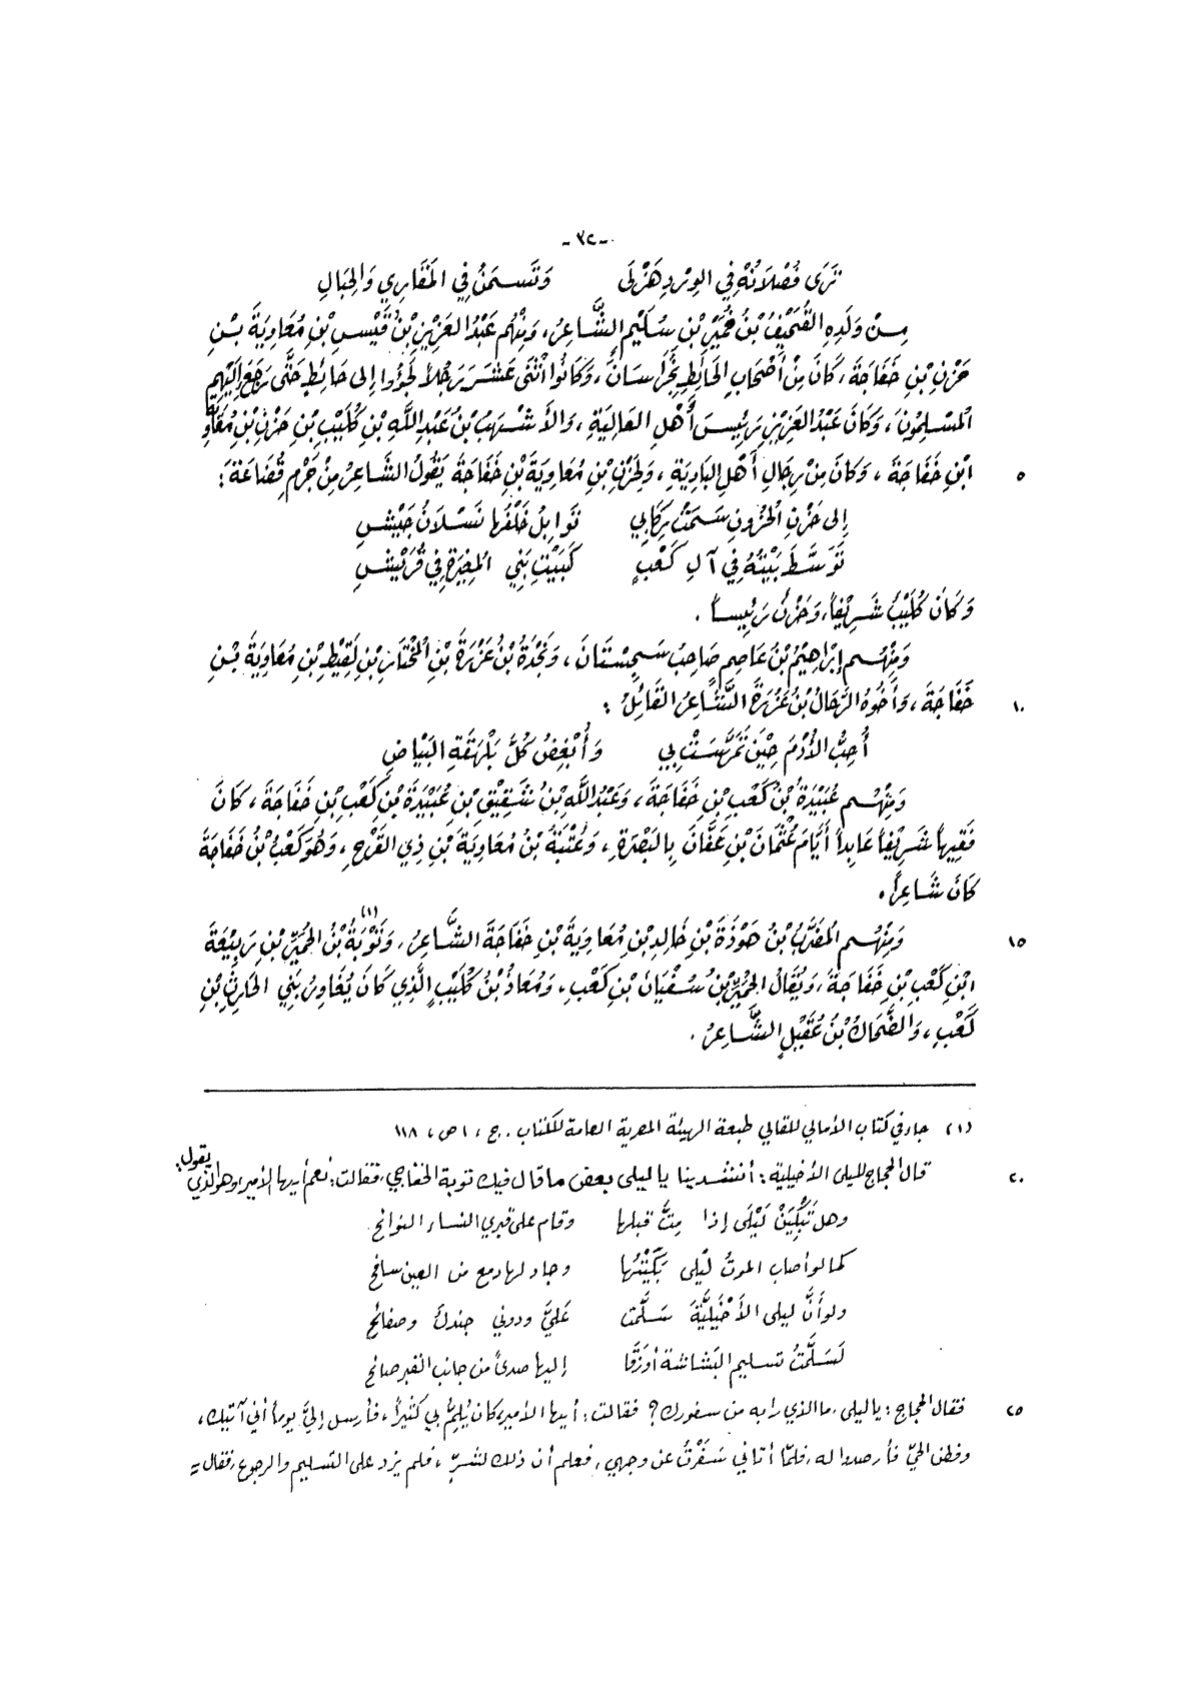 -٣٢-
تَرَى فُصْلَانُهُ فِي الوِرْدِ هَزْلَى وَتَسمَنُ فِي المَقَارِي وَالحِبَالِ
مِنْ وَلَدِهِ القُحَيْفُ بْنُ حُمَيْرِ بْنِ سُلَيْمٍ الشَّاعِرُ، وَمِنْهُم عَبْدُ العَزِيزِ بْنُ قَيْسِ بْنِ مُعَاوِيَةَ بْنِ
حَزْنِ بْنِ خَفَاجَةَ، كَانَ مِنْ أَصْحَابِ الحَائِطِ بِخُرَاسَانَ، وَكَانُوا اثْنَى عَشَرَ رَجُلاً لَجَؤُوا إِلى حَائِطٍ حَتَّى رَجَعَ إِلَيْهِم
المُسْلِمُونَ، وَكَانَ عَبْدُ العَزِيزِ رَئِيسَ أَهْلِ العَالِيَةِ، وَالأَشْهَبُ بْنُ عَبْدِ اللَّهِ بْنِ كُلَيْبِ بْنِ حَزْنِ بْنِ مُعَاوِيَةَ
٥ ابْنِ خَفَاجَةَ، وَكَانَ مِنْ رِجَالِ أَهْلِ البَادِيَةِ، وَلِحَزْنِ بْنِ مُعَاوِيَةَ بْنِ خَفَاجَةَ يَقُولُ الشَّاعِرُ مِنْ جَرْمِ قُضَاعَةَ:
إِلى حَزْنِ الحُزُونِ سَمَتْ رِكَابِي نَوَابِلُ خَلْفَهَا نَسْلَانُ جَيْشِ
تَوَسَّطَ بَيْتُهُ فِي آلِ كَعْبٍ كَبَيْتِ بَنِي المُغِيرَةِ فِي قُرَيْشِ
وَكَانَ كُلَيْبٌ شَرِيْفاً، وَحَزْنٌ رَئِيساً.
وَمِنْهُم إِبْرَاهِيمُ بْنُ عَاصِمٍ صَاحِبُ سَجِسْتَانَ، وَنَجْدَةُ بْنُ عَزْرَةَ بْنِ المُخْتَارِ بْنِ لَقِيْطِ بْنِ مُعَاوِيَةَ بْنِ
١٠ خَفَاجَةَ، وَأَخُوهُ الرَّحَالُ بْنُ عَزْرَةَ الشَّاعِرُ القَائِلُ:
أُحِبُّ الأُدْمَ حِيْنَ تَمَرَّسَتْ بِي وَأُبْغِضُ كُلَّ بَلْهَقَةِ البَيَاضِ
وَمِنْهُم عُبَيْدَةُ بْنُ كَعْبِ بْنِ خَفَاجَةَ، وَعَبْدُ اللَّهِ بْنُ شَقِيْقِ بْنِ عُبَيْدَةَ بْنِ كَعْبِ بْنِ خَفَاجَةَ، كَانَ
فَقِيهاً شَرِيْفاً عَابِداً أَيَّامَ عُثْمَانَ بْنِ عَفَّانَ بِالبَصْرَةِ، وَعُتْبَةُ بْنُ مُعَاوِيَةَ بْنِ ذِي القَرْحِ، وَهُوَ كَعْبُ بْنُ خَفَاجَةَ
كَانَ شَاعِراً.
١٥ وَمِنْهُم المُضَرَّبُ بْنُ هَوْذَةَ بْنِ خَالِدِ بْنِ مُعَاوِيَةَ بْنِ خَفَاجَةَ الشَّاعِرُ، وَتَوْبَةُ (١) بْنُ الحُمَيِّرِ بْنِ رَبِيْعَةَ
ابْنِ كَعْبِ بْنِ خَفَاجَةَ، وَيُقَالُ الحُمَيِّرُ بْنُ سُفْيَانَ بْنِ كَعْبٍ، وَمُعَاذُ بْنُ كُلَيْبٍ الَّذِي كَانَ يُغَاوِرُ بَنِي الحَارِثِ بْنِ
كَعْبٍ، وَالضَّحَاكُ بْنُ عُقَيْلٍ الشَّاعِرُ.
(١) جاء في كتاب الأمالي للقالي طبعة الهيئة المصرية العامة للكتاب. ج، ١ ص، ١١٨
٢٠ قال الحجاج لليلى الأخيلية: أنشدينا يا ليلى بعض ما قال فيك توبة الخفاجي، فقالت: نعم أيها الأمير وهو الذي يقول:
وهل تَبْكِيَنْ لَيْلَى إذا مِتُّ قبلها وقام على قبري النساء النوائح
كما لو أصاب الموتُ لَيْلى بَكَيْتُها وجاد لها دمع من العين سافح
ولو أَنَّ ليلى الأَخْيَلِيَّةَ سَلَّمت عَلَيَّ ودوني جندلٌ وصفائح
لَسَلَّمْتُ تسليم البَشاشة أو زَقَا إليها صدىً من جانب القبر صائح
٢٥ فقال الحجاج: يا ليلى، ما الذي رابه من سفورك؟ فقالت: أيها الأمير، كان يُلِمُّ بي كثيراً، فأرسل إليَّ يوماً أني آتيك،
وفطن الحيّ فأرصدوا له، فلمّا أتاني سَفَرْتُ عن وجهي، فعلم أن ذلك لشرٍّ، فلم يزد على التسليم والرجوع، فقال =